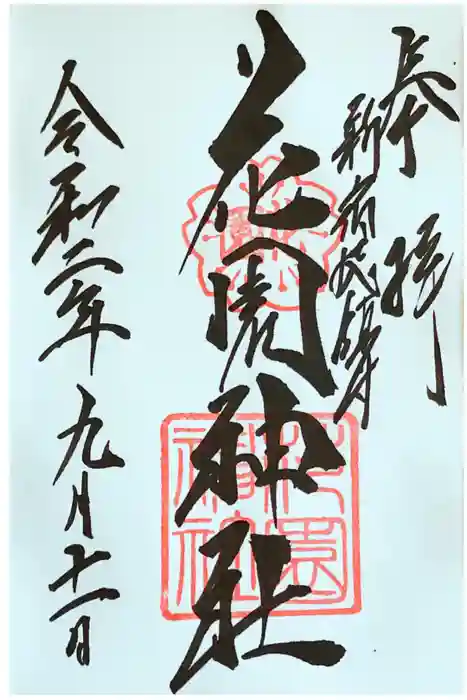 奉拝
新宿総鎮守
花園神社
令和二年九月十一日
花園神社